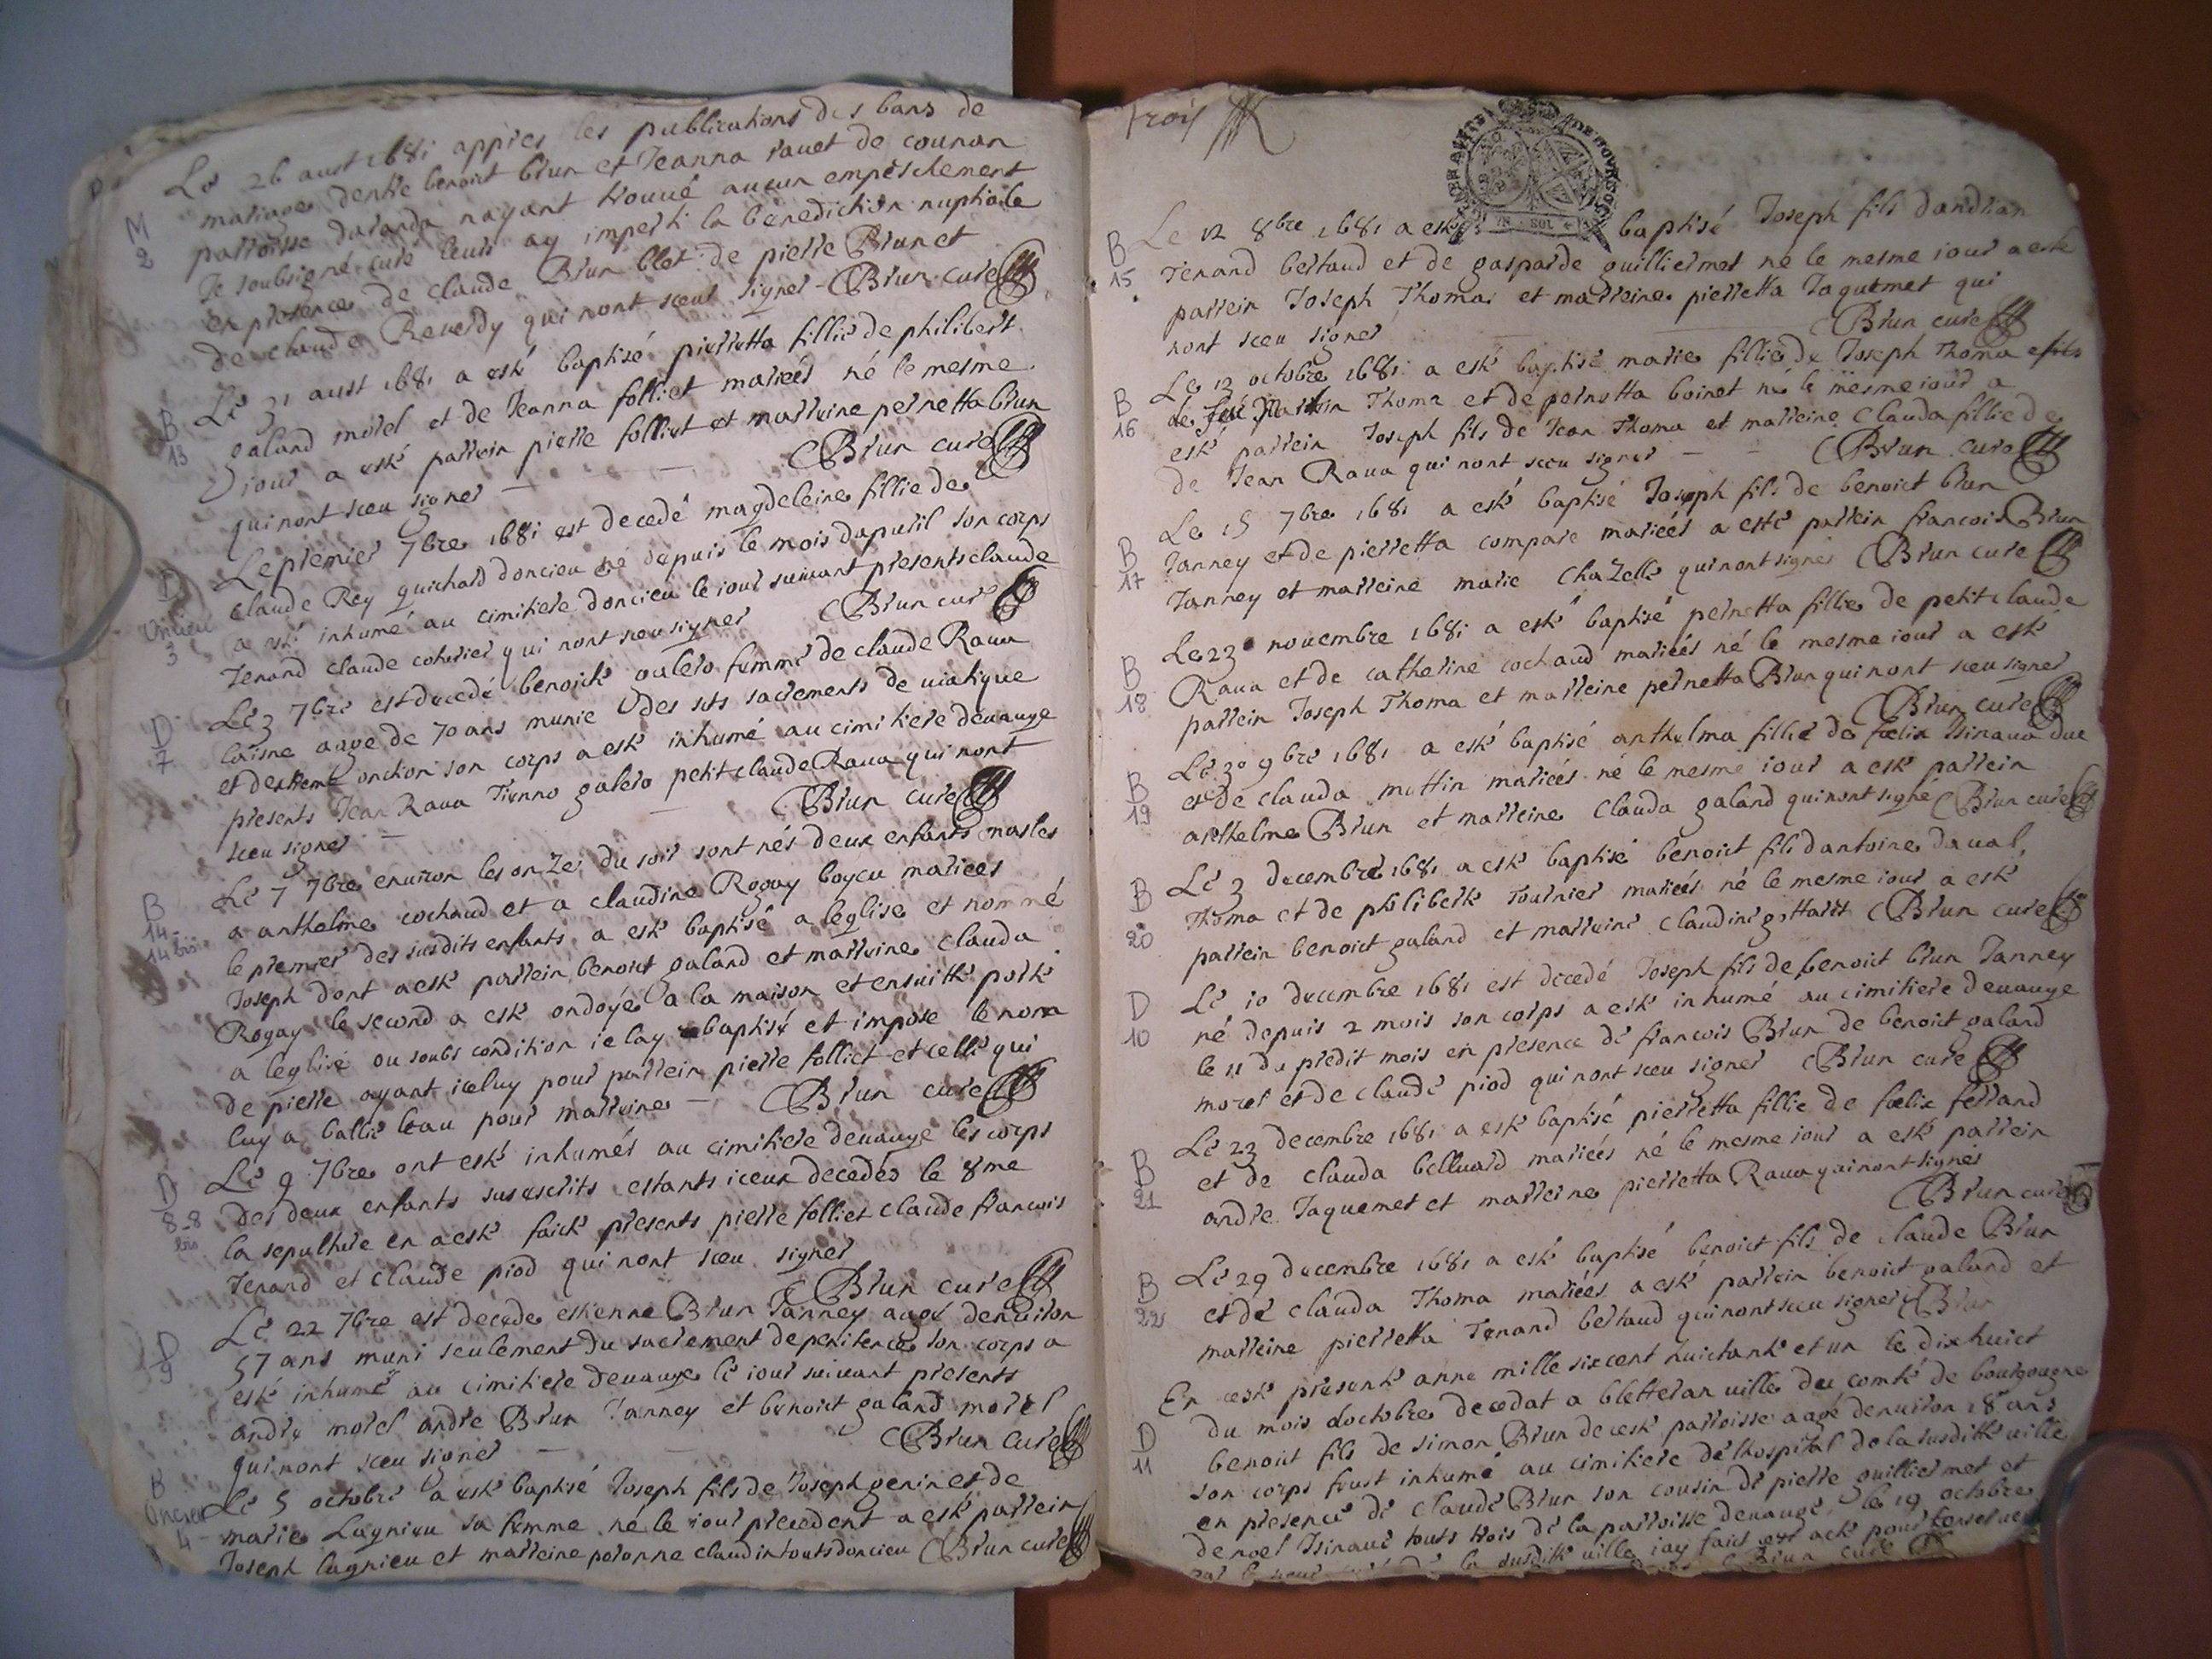 Le 26 aust 1681 appres les publications des bans de
mariage dentre benoict brun et Jeanna rauet de counan
parroisse daranda nayant trouué aucun empeschement
Je soubsigné curé leurs ay imperti la bénediction nuptiale
en presence de claude Brun blet de pierre Brun et
de claude Reuerdy qui nont sceus signer - Brun curé
M
2
Le 31 aust 1681 a esté baptisé pierretta fillie de philibert
galand morel et de Jeanna folliet mariéés né le mesme
iour a esté parrein pierre folliet et marreine pernetta brun
qui nont sceu signer - - Brun curé
B
13
Le premier 7bre 1681 est decedé magdeleine fillie de
claude Rey guichard doncieu né depuis le mois dapuril son corps
a esté inhumé au cimitiere doncieu le iour suiuant presents claude
Tenand claude coherier qui nont sceu signer Brun curé
D
Oncieu
3
Le 3 7bre est decedé benoicte galero femme de claude Raua
laisne aage de 70 ans munie des sts sacrements de uiatique
et dextreme onction son corps a esté inhumé au cimitiere deuauge
presents Jean Raua Tienno galero petit claude Raua qui nont
sceu signer - - Brun curé
D
7
Le 7 7bre enuiron les onze du soir sont nés deux enfants masles
a anthelme cochaud et a claudine Rogay boyeu mariees
le premier des susdits enfants a esté baptisé a leglise et nommé
Joseph dont a esté parrein benoict galand et marreine clauda
Rogay le second a esté ondoyé a la maison et ensuitte porté
a leglise ou soubs condition ie lay baptisé et impose le nom
de pierre ayant iceluy pour parrein pierre folliet et celle qui
luy a ballie leau pour marreine - Brun curé
B
14-
14 bis
Le 9 7bre ont esté inhumés au cimitiere deuauge les corps
des deux enfants susescrits estants iceux decedés le 8me
la sepulture en a esté faicte presents pierre folliet claude francois
Tenand et claude piod qui nont sceu signer
Brun curé
D
8-8
bis
Le 22 7bre est décede estienne Brun Janney aagé denuiron
57 ans muni seulement du sacrement de penitence son corps a
esté inhumé au cimitiere deuauge le iour suiuant presents
andre morel andre Brun Janney et benoict galand morel
qui nont sceu signer - - Brun curé
D
9
Le 5 octobre a esté baptisé Joseph fils de Joseph genin et de
marie Lagnieu sa femme né le iour precedent a esté parrein
Joseph lagnieu et marreine peronne claudin touts doncieu Brun curé
B
Oncieu
4
trois
Le 12 8bre 1681 a esté baptisé Joseph fils dandrian
Tenand bertaud et de gasparde guilliermet né le mesme iour a esté
parrein Joseph Thoma et marreine pierretta Jaquemet qui
nont sceu signer Brun curé
B
15
Le 13 octobre 1681 a esté baptisé marie fillie de Joseph Thoma
Thoma et de pernetta boinet né le mesme iour a
esté parrein Joseph fils de Jean Thoma et marreine Clauda fillie de
de Jean Raua qui nont sceu signer - - Brun curé
B
16
Le 15 7bre 1681 a esté baptisé Joseph fils de benoict brun
Janney et de pierretta compare mariéés a esté parrein francois Brun
Janney et marreine marie Chazelle qui nont signés Brun curé
B
17
Le 23 nouembre 1681 a esté baptisé pernetta fillie de petit claude
Raua et de catherine cochaud mariéés né le mesme iour a esté
parrein Joseph Thoma et marreine pernetta Brun qui nont sceu signer
Brun curé
B
18
Le 30 9bre 1681 a esté baptisé anthelma fillie de foelix Tsinaua due
et de clauda mattin mariéés né le mesme iour a esté parrein
anthelme Brun et marreine clauda galand qui nont signe Brun curé
B
19
Le 3 decembre 1681 a esté baptisé benoict fils dantoine daual
Thoma et de philiberte Tournier mariéés né le mesme iour a esté
parrein benoict galand et marreine claudine gottaret Brun curé
B
20
Le 10 decembre 1681 est decedé Joseph fils de benoict brun Janney
né depuis 2 mois son corps a esté inhumé au cimitiere deuauge
le 11 du predit mois en presence de francois Brun de benoict galand
morel et de claude piod qui nont sceu signer Brun curé
D
10
Le 23 decembre 1681 a esté baptisé pierretta fillie de foelix ferrand
et de clauda belluard mariéés né le mesme iour a esté parrein
andre Jaquemet et marreine pierretta Raua qui nont signés
Brun curé
B
21
Le 29 decembre 1681 a esté baptisé benoict fils de claude Brun
et de clauda Thoma mariéés a esté parrein benoict galand et
marreine pierretta Tenand bertaud qui nont sceu signer Brun
B
22
En ceste presente anne mille sixcent huictante et un le dixhuict
du mois doctobre decedat a bletteran uille du comté de bourgougne
benoict fils de simon Brun de ceste parroisse aagé denuiron 18 ans
son corps feust inhumé au cimitiere de lhospital de la susditte uille
en presence de claude Brun son cousin de pierre guilliermet et
de noel Tsinaue touts trois de la parroisse deuauge le 19 octobre
D
11
la susditte uille iay faict cest acte pour
Brun curé